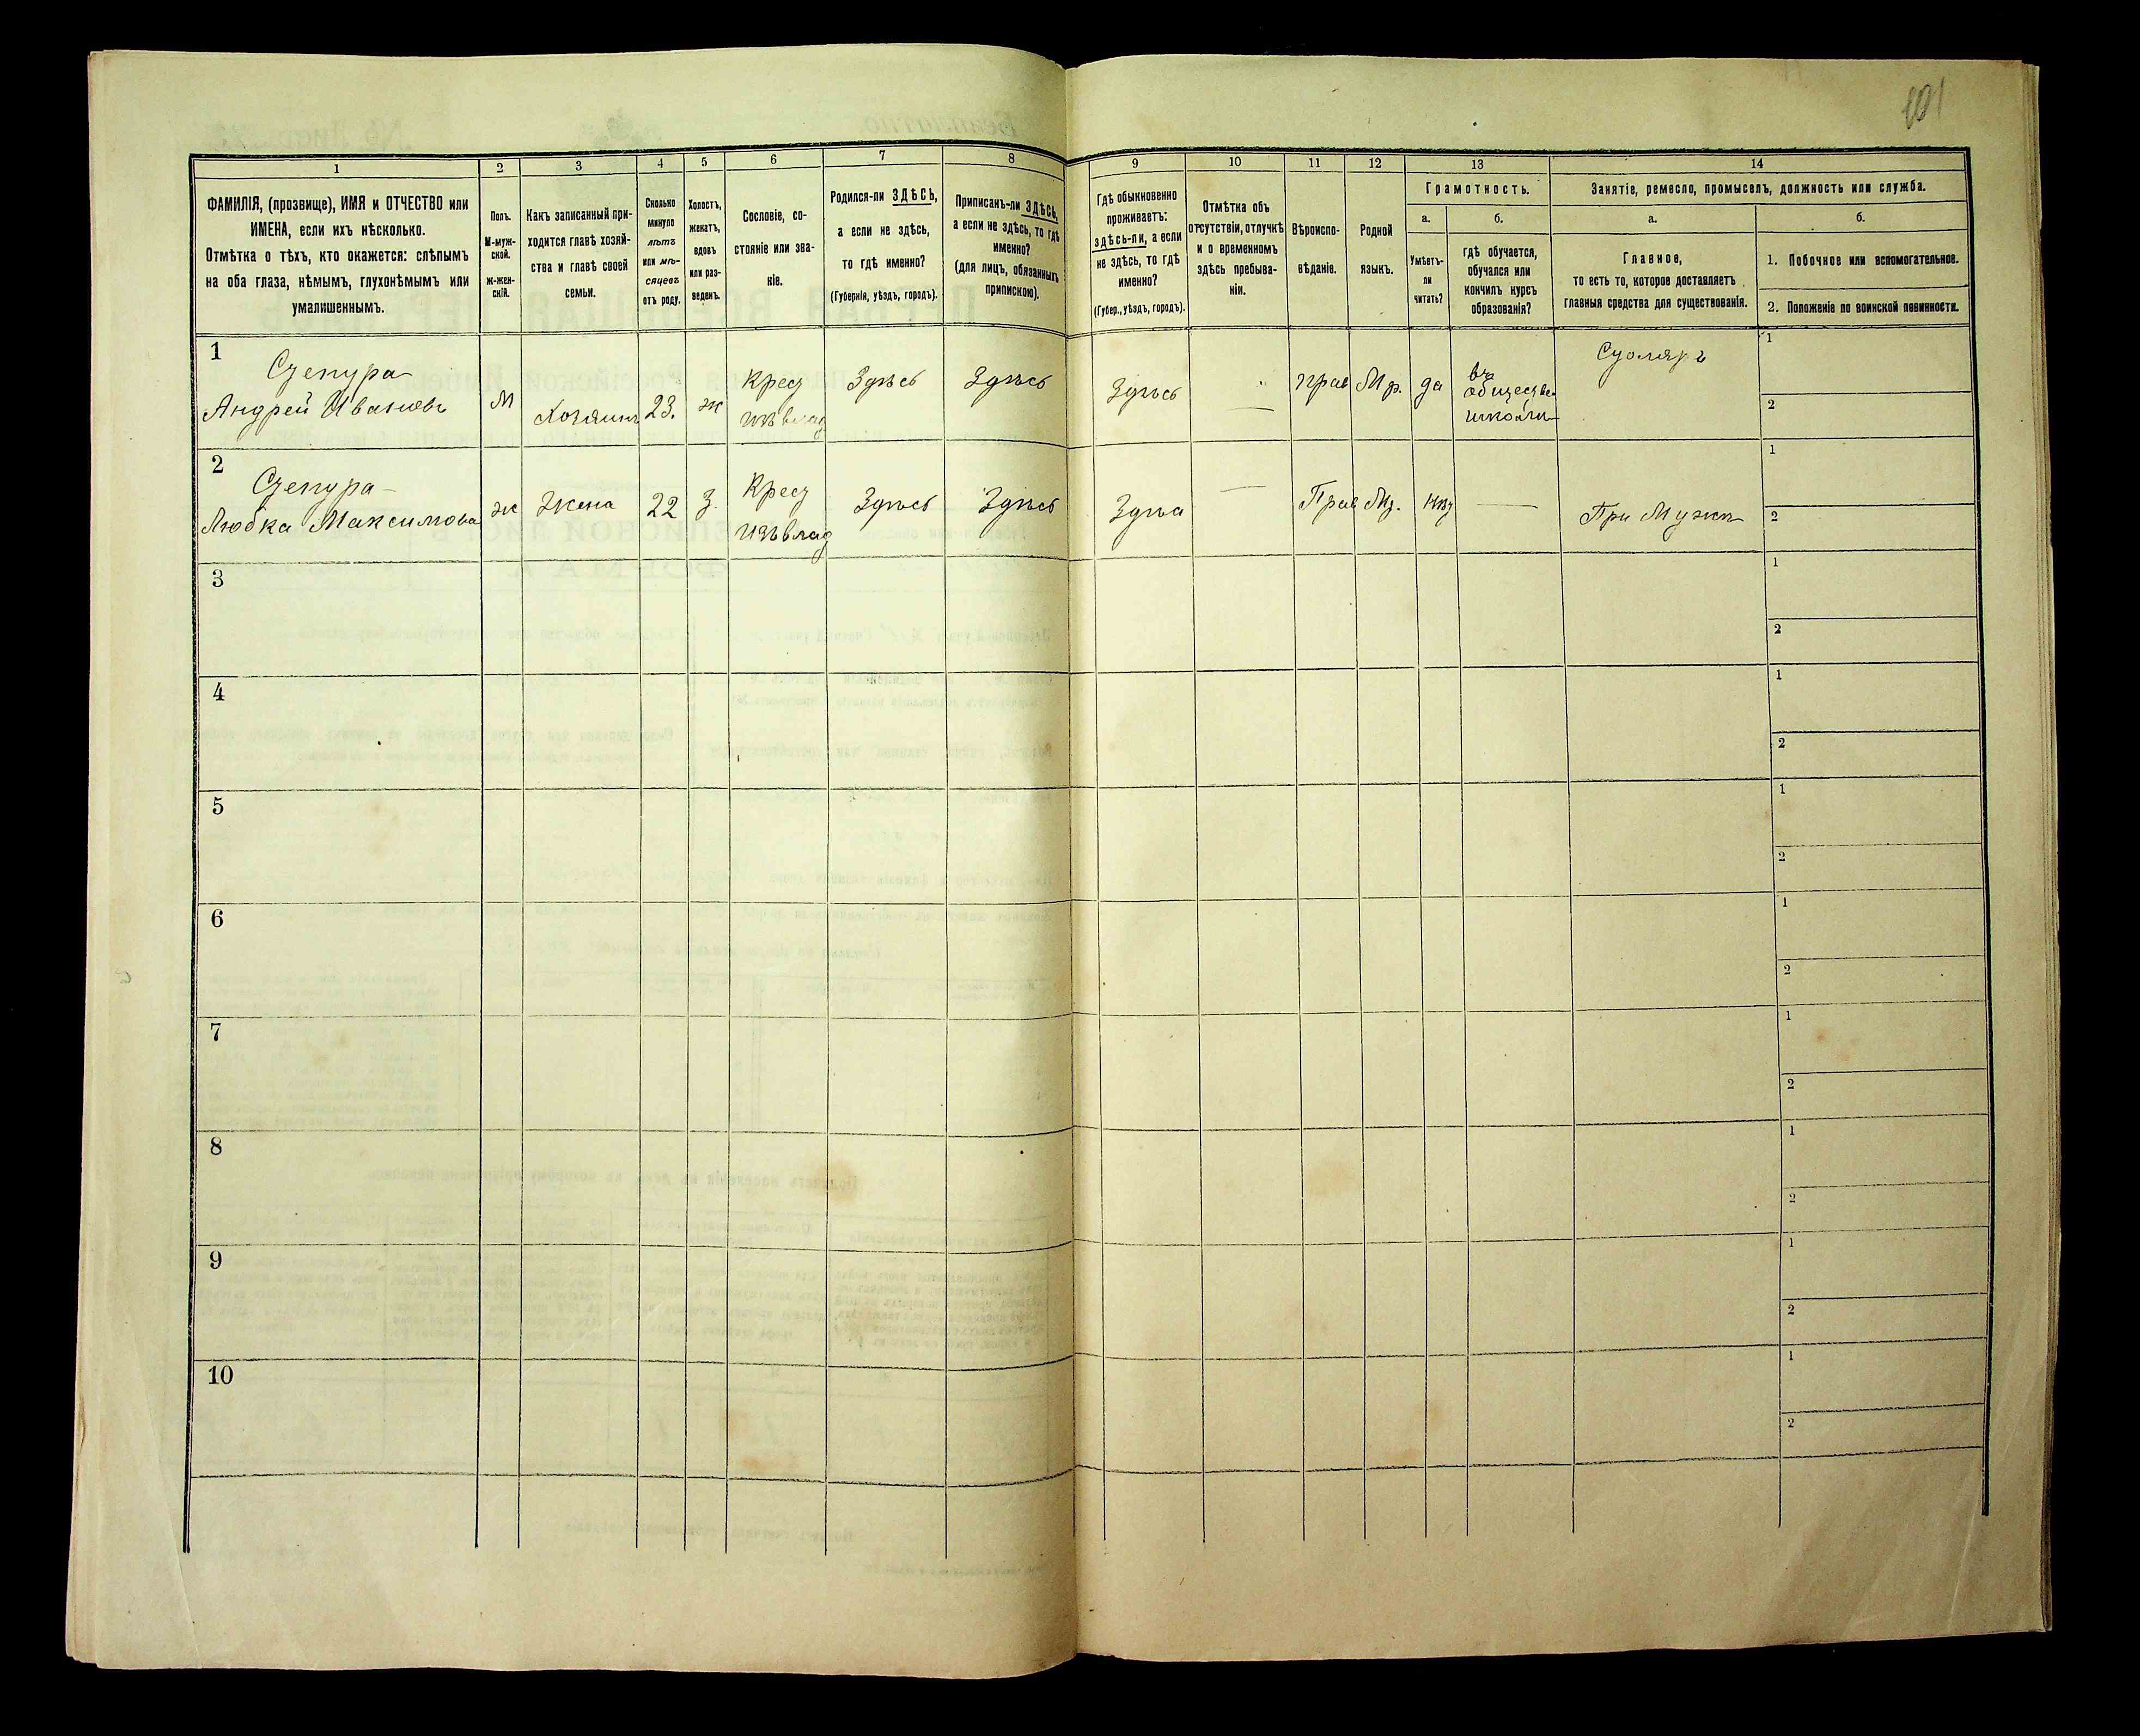 101
1
2
3
4
5
6
7
8
9
10
11
12
13
14
ФАМИЛІЯ, (прозвище), ИМЯ и ОТЧЕСТВО или
ИМЕНА, если ихъ нѣсколько.
Отмѣтка о тѣхъ, кто окажется: слѣпымъ
на оба глаза, нѣмымъ, глухонѣмымъ или
умалишеннымъ.
Полъ.
М-муж-
ской.
ж-жен-
скій.
Какъ записанный при-
ходится главѣ хозяй-
ства и главѣ своей
семьи.
Сколько
минуло
лѣтъ
или мѣ-
сяцевъ
отъ роду.
Холостъ,
женатъ,
вдовъ
или раз-
веденъ.
Сословіе, со-
стояніе или зва-
ніе.
Родился-ли ЗДѢСЬ,
а если не здѣсь,
то гдѣ именно?
(Губернія, уѣздъ, городъ).
Приписанъ-ли ЗДѢСЬ,
а если не здѣсь, то гдѣ
именно?
(для лицъ, обязанныхъ
припискою).
Гдѣ обыкновенно
проживаетъ:
здѣсь-ли, а если
не здѣсь, то гдѣ
именно?
(Губер., уѣздъ, городъ).
Отмѣтка объ
отсутствіи, отлучкѣ
и о временномъ
здѣсь пребыва-
ніи.
Вѣроиспо-
вѣданіе.
Родной
языкъ.
Грамотность.
а.
Умѣетъ-
ли
читать?
б.
гдѣ обучается,
обучался или
кончилъ курсъ
образованія?
Занятіе, ремесло, промыселъ, должность или служба.
а.
Главное,
то есть то, которое доставляетъ
главныя средства для существованія.
б.
1. Побочное или вспомогательное.
2. Положеніе по воинской повинности.
1
Сцепура
Андрей Ивановъ
М
Хозяинъ
23.
ж
Крест
изъ влад
Здѣсь
Здѣсь
Здѣсь
—
прав
Мр.
да
въ
обществен
школи
Столяръ
1
2
2
Сцепура
Любка Максимова
ж
Жена
22
З.
Крест
изъ влад
Здѣсь
Здѣсь
—
Прав
Мр.
нѣт
—
При Мужѣ
1
2
3
1
2
4
1
2
5
1
2
6
1
2
7
1
2
8
1
2
9
1
2
10
1
2